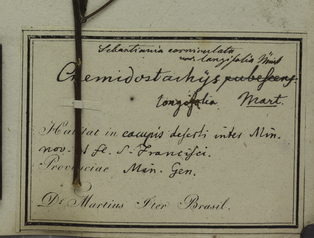 Sebastiania corniculata
var. longifolia Müll
Cnemidostachys pubescens
longifolia Mart.
Habitat in campis deserti inter Min.
nov. & fl. S. Francisci.
Provinciae Min. Gen.
Dr. Martius Iter Brasil.